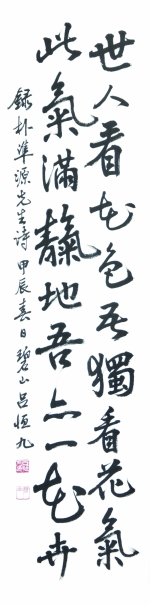 世人看花色吾獨看花氣
此氣滿靝地吾亦一花卉
錄朴準源先生詩 甲辰春日 碧山呂恒九